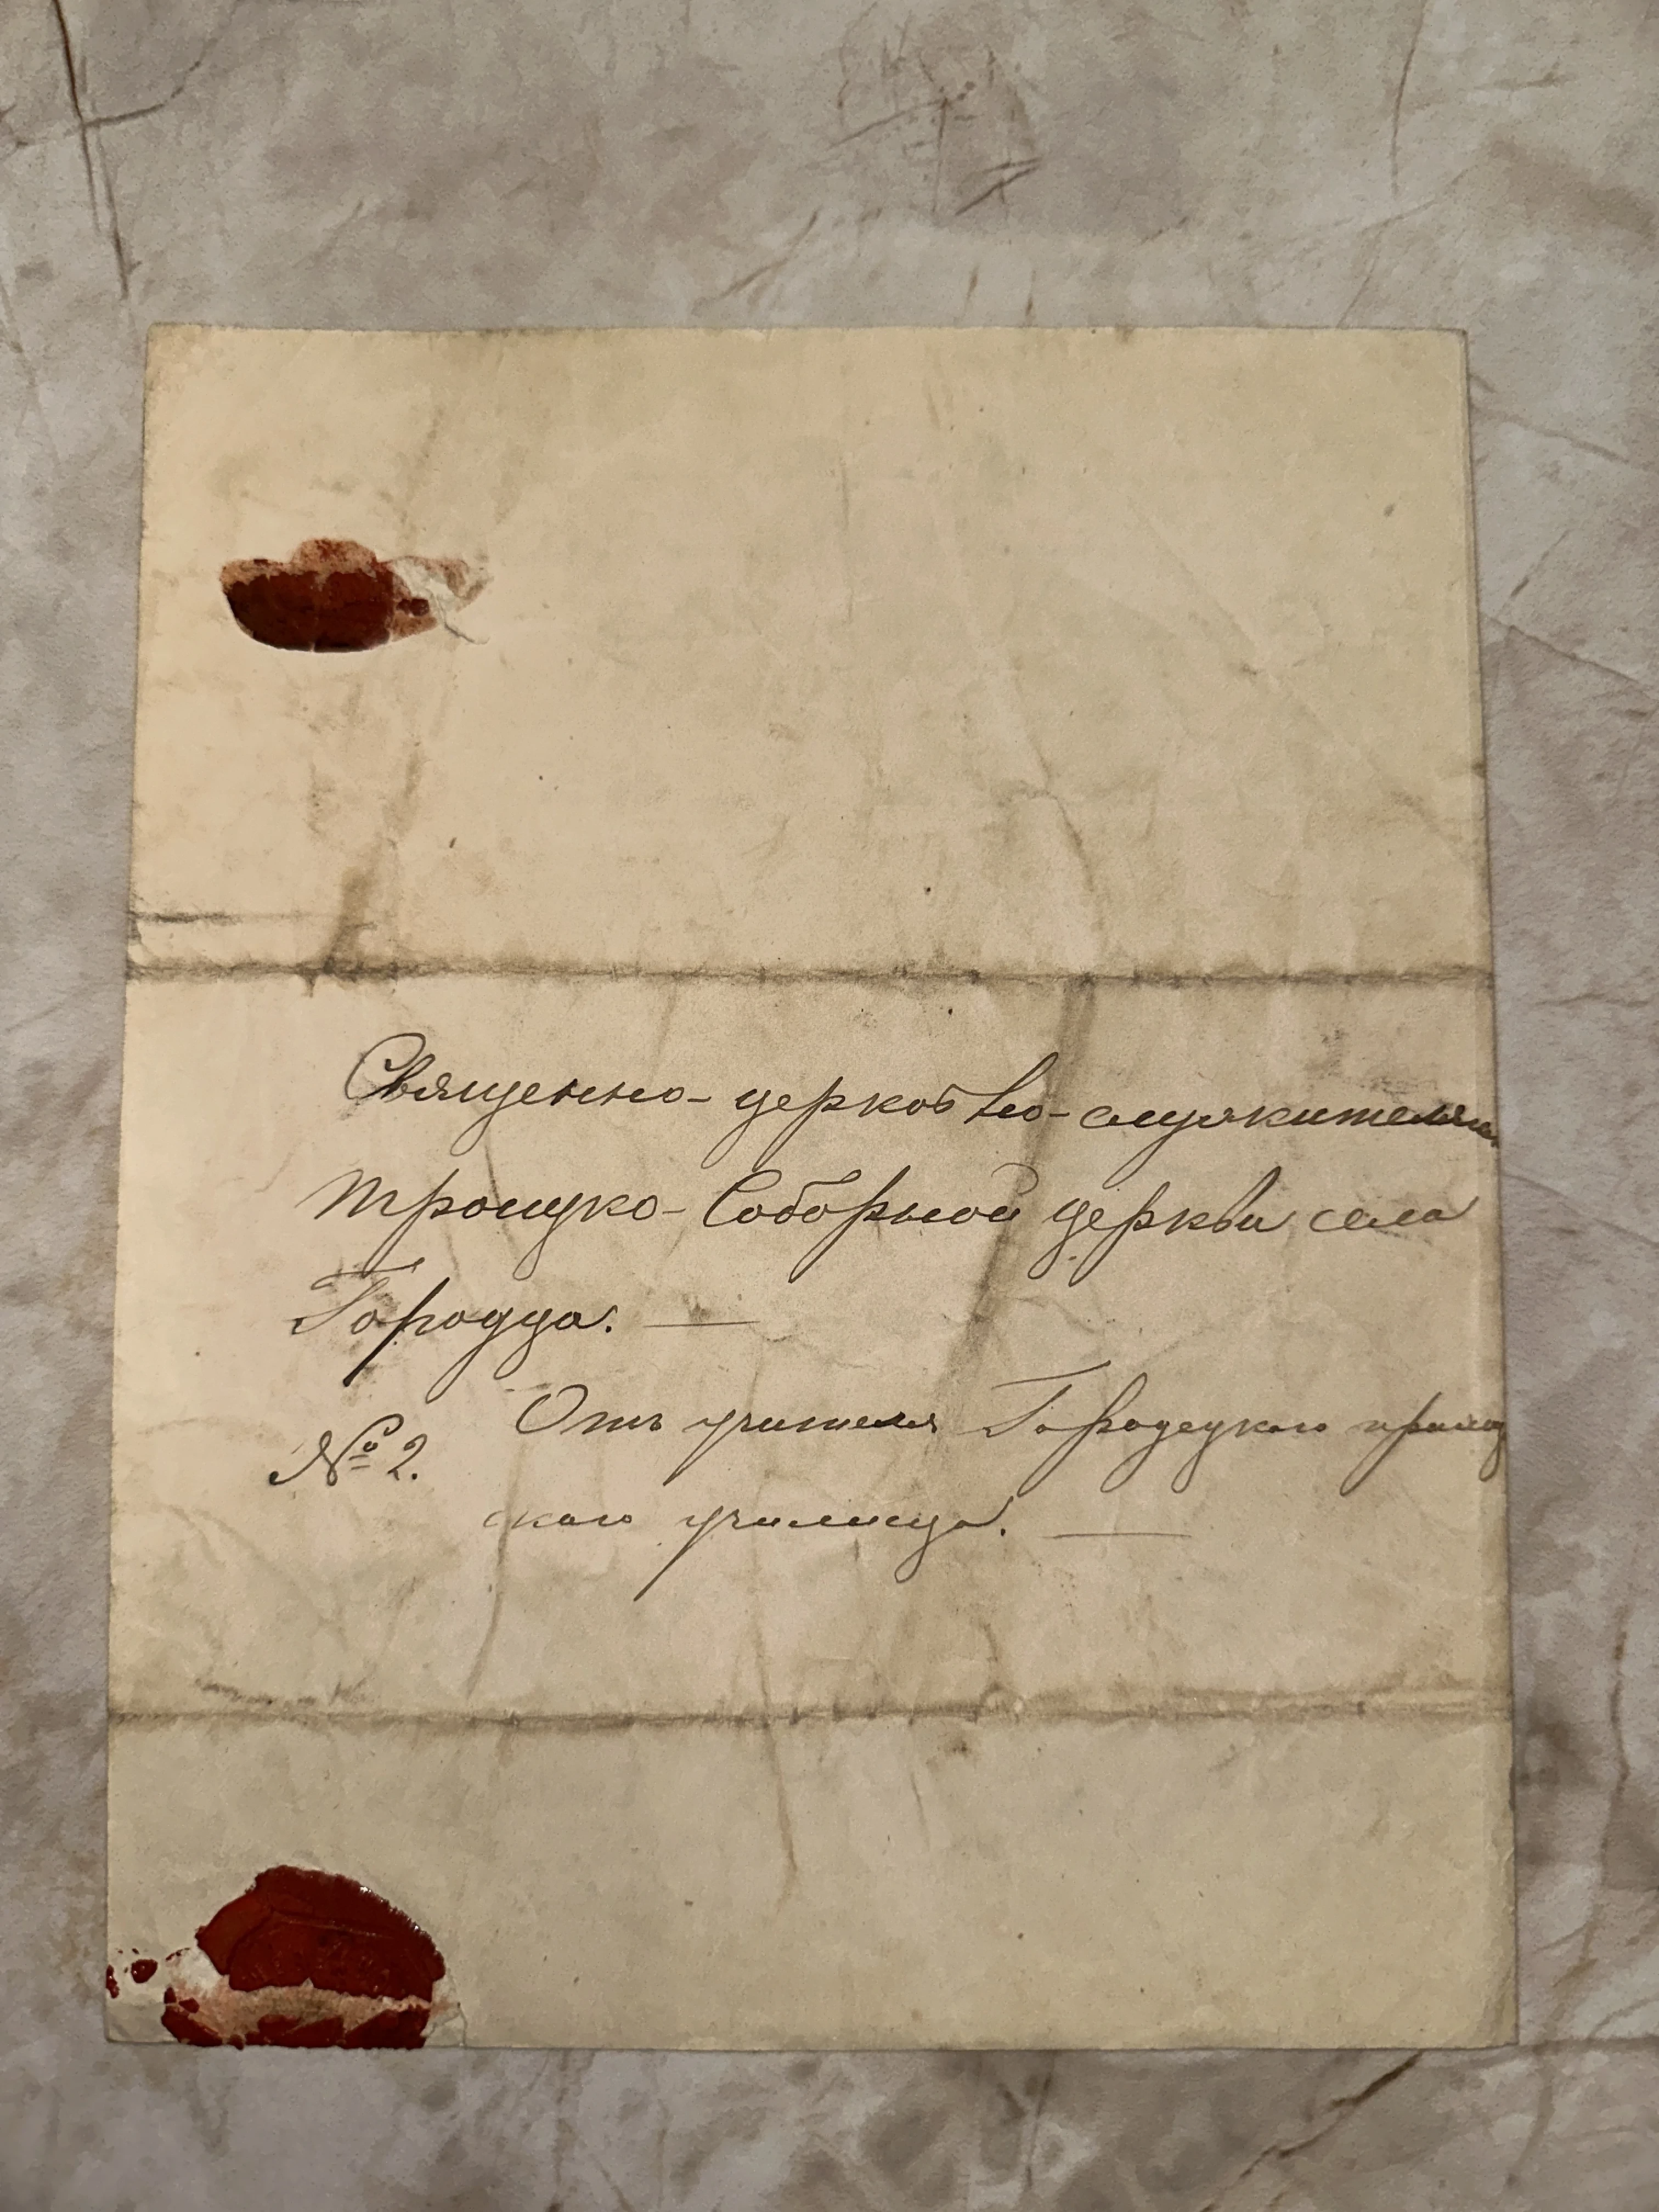 Священно-церковно-служителямъ
Троицко-Соборной церкви села
Городца. —
Отъ учителя Городецкаго приход
№ 2.
скаго училища. —